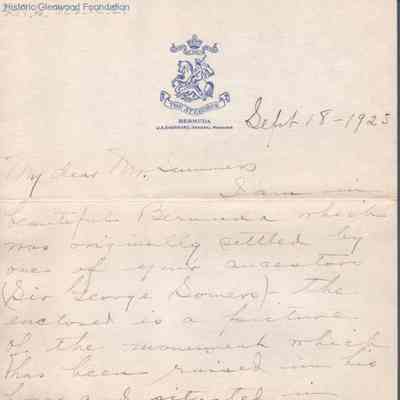 Historic Glenwood Foundation
HOTEL ST. GEORGE
BERMUDA
Sept 18-1923
My dear Mr. Summers
I am in
beautiful Bermuda which
was originally settled by
one of your ancestors
(Sir George Somers) the
enclosed is a picture
of the monument which
has been raised in his
situated in